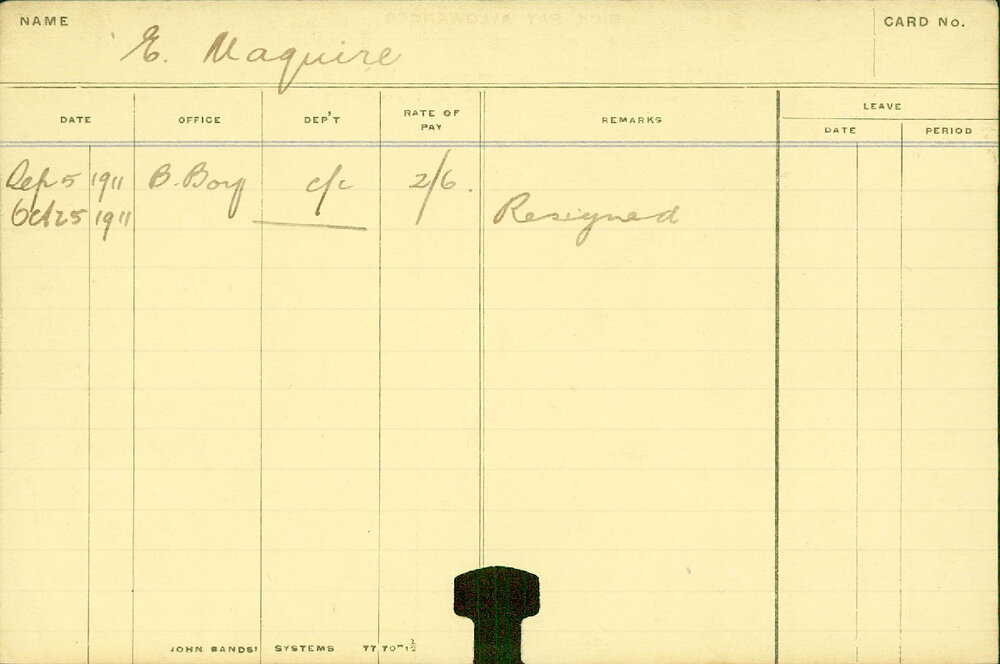 NAME
E. Maguire
CARD No.
DATE OFFICE DEP'T RATE OF PAY REMARKS LEAVE
DATE PERIOD
Sep 5 1911 B. Boy c/c 2/6.
Oct 25 1911 Resigned
JOHN SANDS' SYSTEMS 77 70